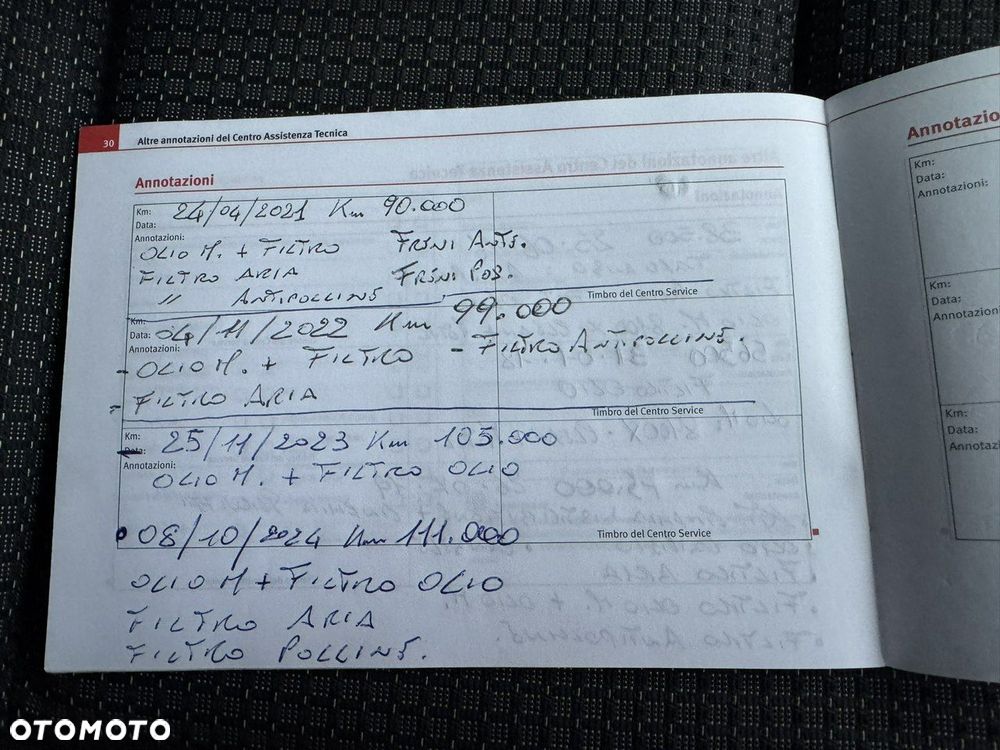 30 Altre annotazioni del Centro Assistenza Tecnica
Annotazioni
Km:
Data:
24/04/2021 Km 90.000
Annotazioni:
OLIO M. + FILTRO FRENI ANTE.
FILTRO ARIA FRENI POS.
" ANTIPOLLINE
Timbro del Centro Service
Km:
Data:
04/11/2022 Km 99.000
Annotazioni:
- OLIO M. + FILTRO - FILTRO ANTIPOLLINE.
- FILTRO ARIA
Timbro del Centro Service
Km:
25/11/2023 Km 105.000
Annotazioni:
OLIO M. + FILTRO OLIO
Timbro del Centro Service
• 08/10/2024 Km 111.000
OLIO M + FILTRO OLIO
FILTRO ARIA
FILTRO POLLINE.
Annotazio
Km:
Data:
Annotazioni:
Km:
Data:
Annotazioni
Km:
Data:
Annotazi
OTOMOTO